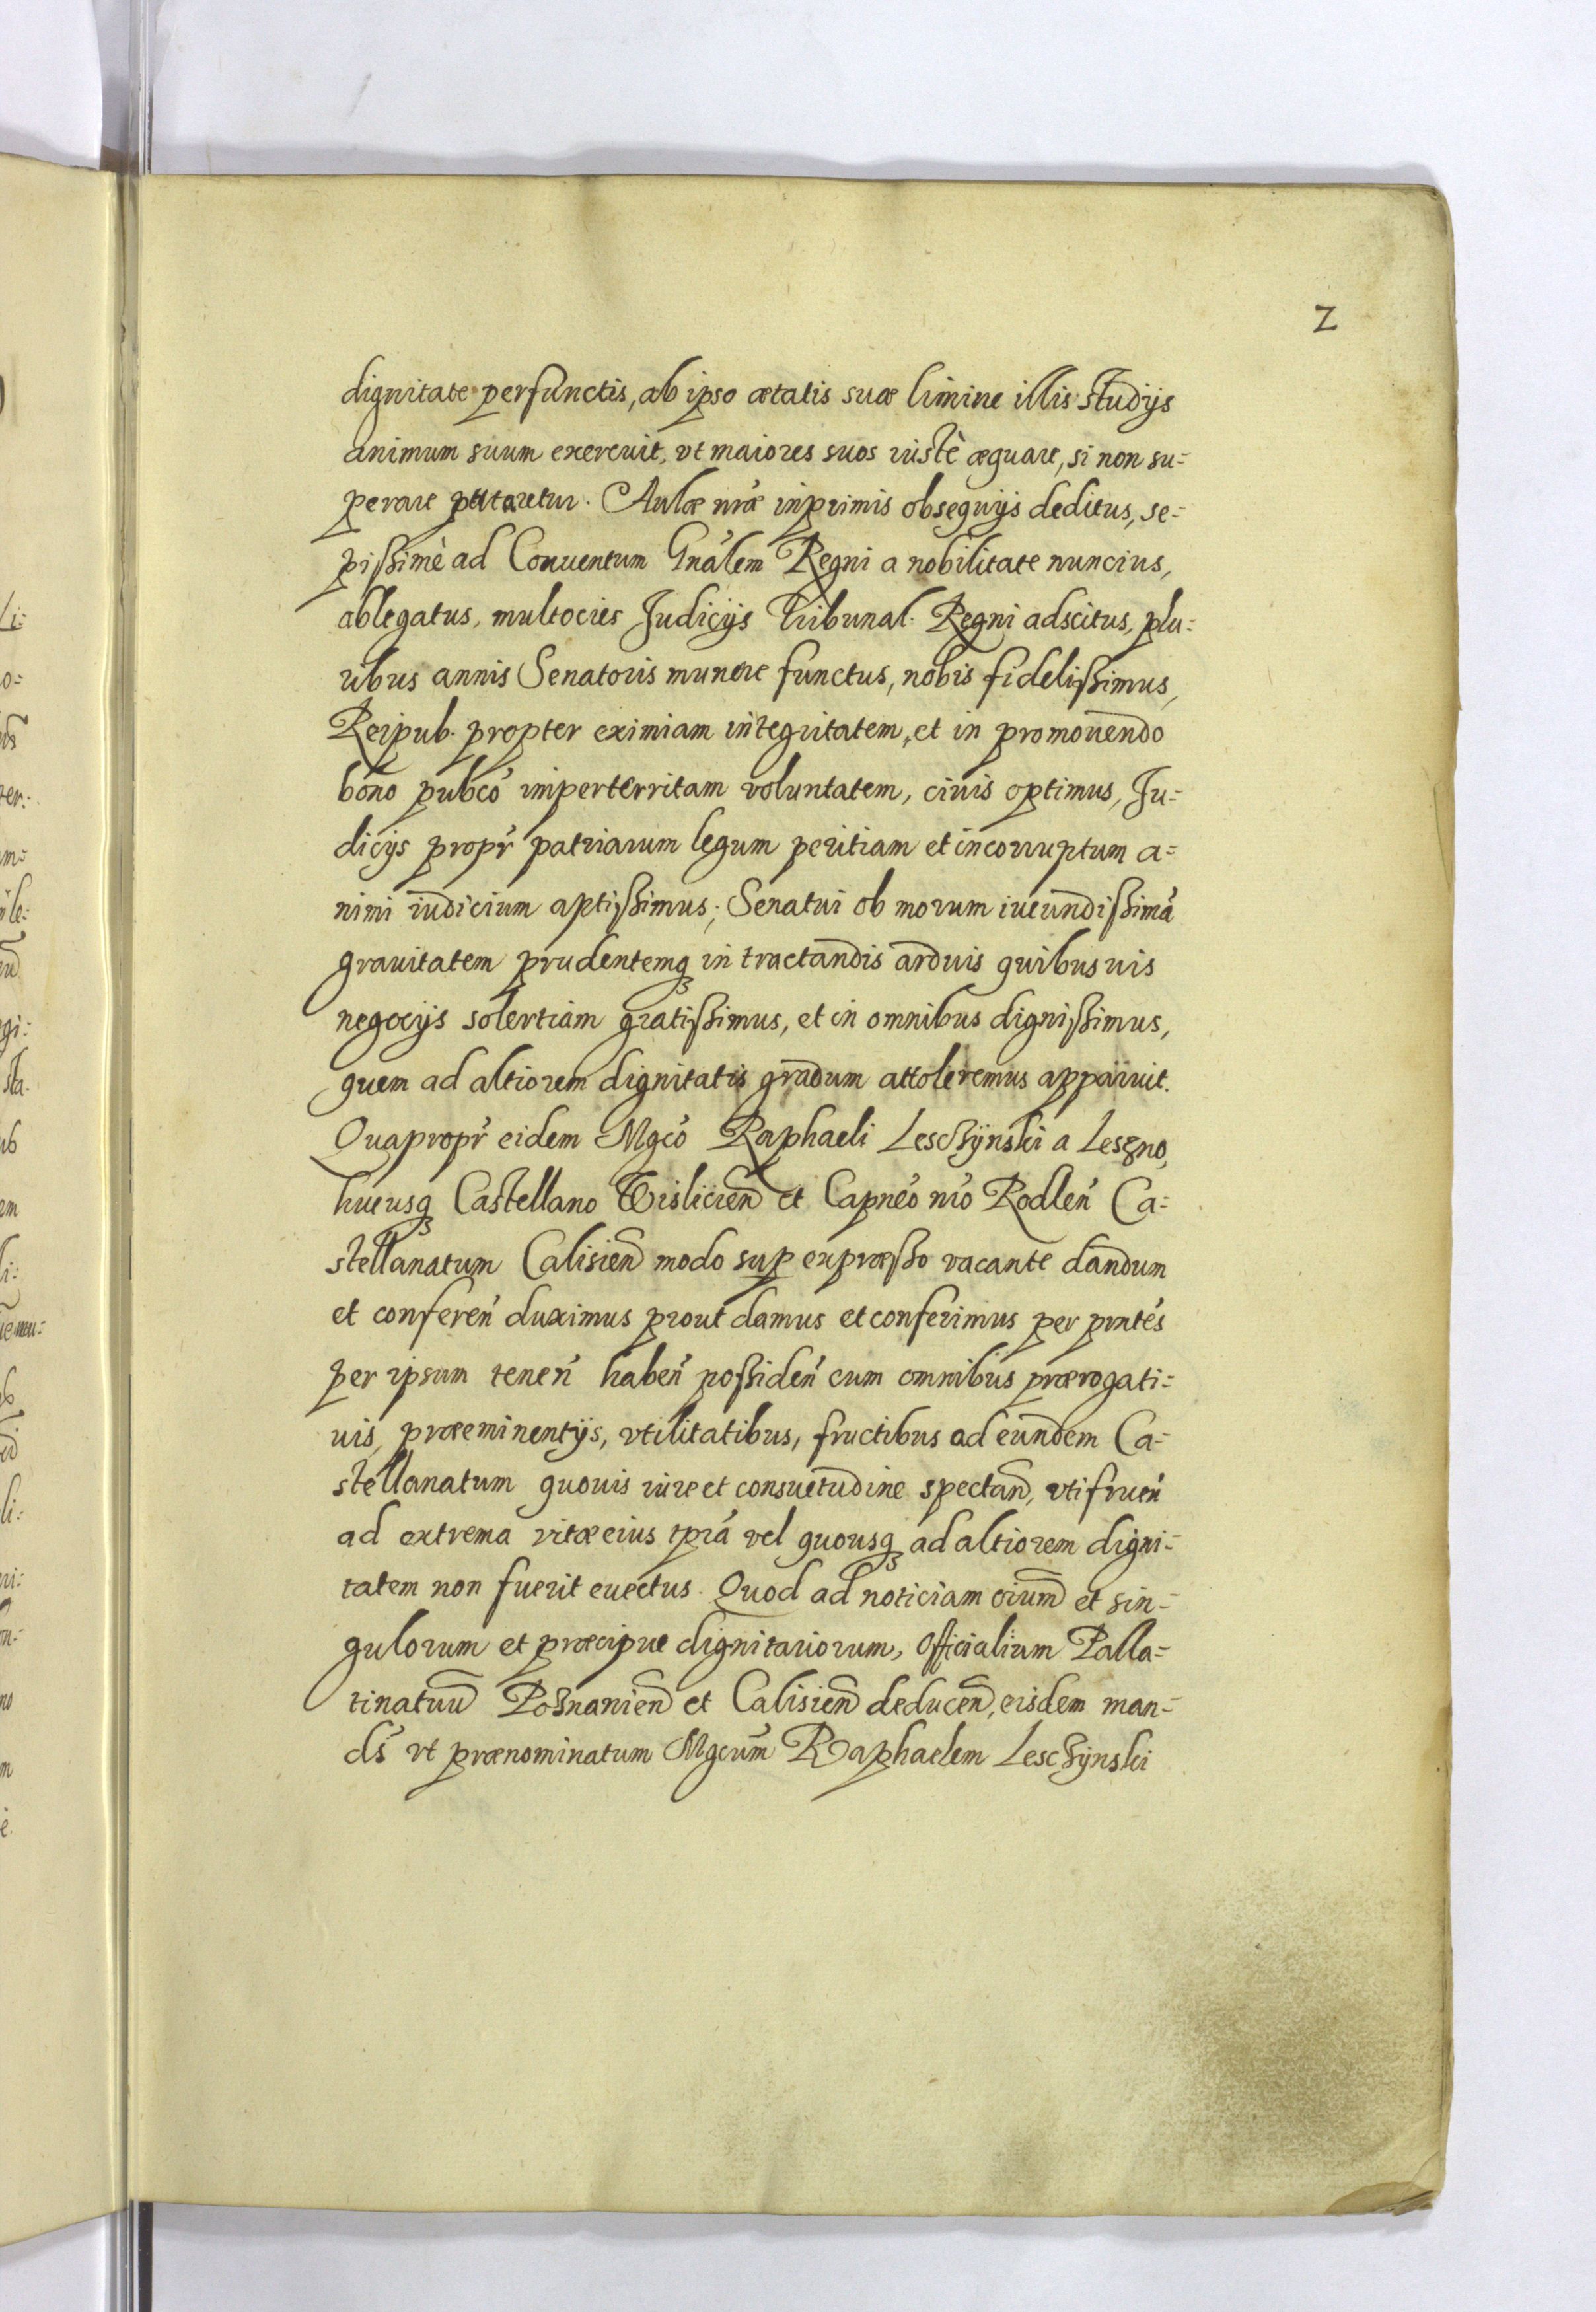 2
dignitate perfunctis, ab ipso ætatis suæ limine illis studijs
animum suum exercuit, vt maiores suos iustè æquare, si non su=
perare putaretur. Aulæ nrǽ inprimis obsequijs deditus, se=
pissimè ad Conuentum Gnálem Regni a nobilitate nuncius,
ablegatus, multocies Judicijs Tribunal. Regni adscitus, plu=
ribus annis Senatoris munere functus, nobis fidelissimus,
Reipub. propter eximiam integritatem, et in promouendo
bono pubcó imperterritam voluntatem, ciuis optimus, Ju=
dicijs propŕ patriarum legum peritiam et incorruptum a=
nimi iudicium aptissimus; Senatui ob morum iucundissimá
grauitatem prudentemq̃ in tractandis arduis quibusuis
negocijs solertiam gratissimus, et in omnibus dignissimus,
quem ad altiorem dignitatis gradum attoleremus apparuit.
Quapropŕ eidem Mgcó Raphaeli Leschÿnski a Leszno,
hucusq̃ Castellano Wislicien̄ et Capneó nró Rodlen̄ Ca=
stellanatum Calisien̄ modo sup expræsso vacante dandum
et conferen̄ duximus prout damus et conferimus per prntés
per ipsum tenen̄ haben̄ possiden̄ cum omnibus prærogati=
uis, præeminentijs, vtilitatibus, fructibus ad eundem Ca=
stellanatum quouis iure et consuetudine spectan̄, vtifruen̄
ad extrema vitæ eius tprá vel quousq̃ ad altiorem digni=
tatem non fuerit euectus. Quod ad noticiam oium̄ et sin=
gulorum et præcipue dignitariorum, Officialium Palla=
tinatuū Posnanien̄ et Calisien̄ deducen̄, eisdem man=
dś vt prænominatum Mgcúm Raphaelem Leschÿnski